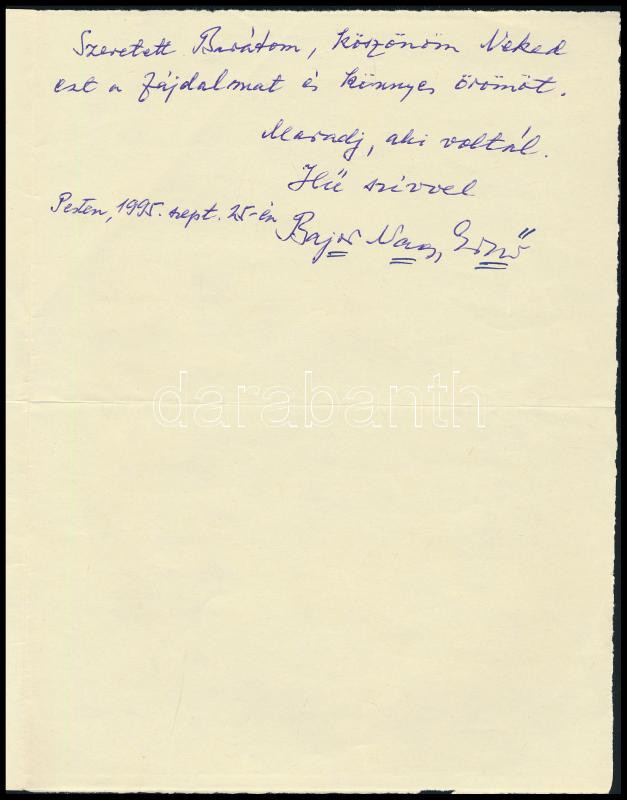 Szeretett Barátom, köszönöm Neked
ezt a fájdalmat és könnyes örömöt.
Maradj, aki voltál.
Hű szívvel
Pesten, 1995. szept. 25-én
Bajor Nagy Ernő
darabanth